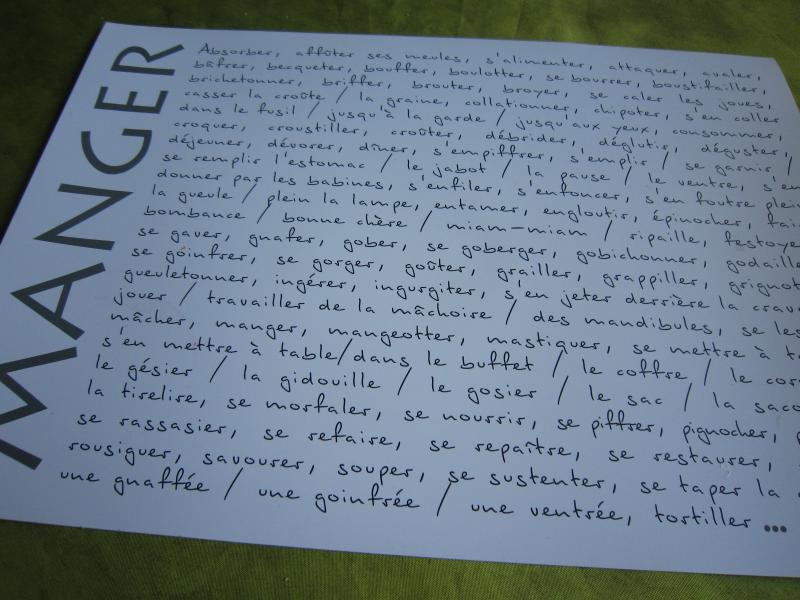 MANGER
Absorber, affûter ses meules, s'alimenter, attaquer, avaler,
bâfrer, becqueter, bouffer, boulotter, se bourrer, boustifailler,
brichetonner, briffer, brouter, broyer, se caler les joues,
casser la croûte / la graine, collationner, chipoter, s'en coller
dans le fusil / jusqu'à la garde / jusqu'aux yeux, consommer,
croquer, croustiller, croûter, débrider, déglutir, déguster,
déjeuner, dévorer, dîner, s'empiffrer, s'emplir / se garnir /
se remplir l'estomac / le jabot / la panse / le ventre, s'en
donner par les babines, s'enfiler, s'enfoncer, s'en foutre plein
la gueule / plein la lampe, entamer, engloutir, épinocher,
bombance / bonne chère / miam-miam / ripaille,
se gaver, gnafer, gober, se goberger, gobichonner,
se goinfrer, se gorger, goûter, grailler, grappiller,
gueuletonner, ingérer, ingurgiter, s'en jeter derrière la
jouer / travailler de la mâchoire / des mandibules, se les
mâcher, manger, mangeotter, mastiquer, se mettre à
s'en mettre à table/dans le buffet / le coffre / le
le gésier / la gidouille / le gosier / le sac / la
la tirelire, se morfaler, se nourrir, se piffrer, pignocher,
se rassasier, se refaire, se repaître, se restaurer,
rousiguer, savourer, souper, se sustenter, se taper la
une gnaffée / une goinfrée / une ventrée, tortiller ...